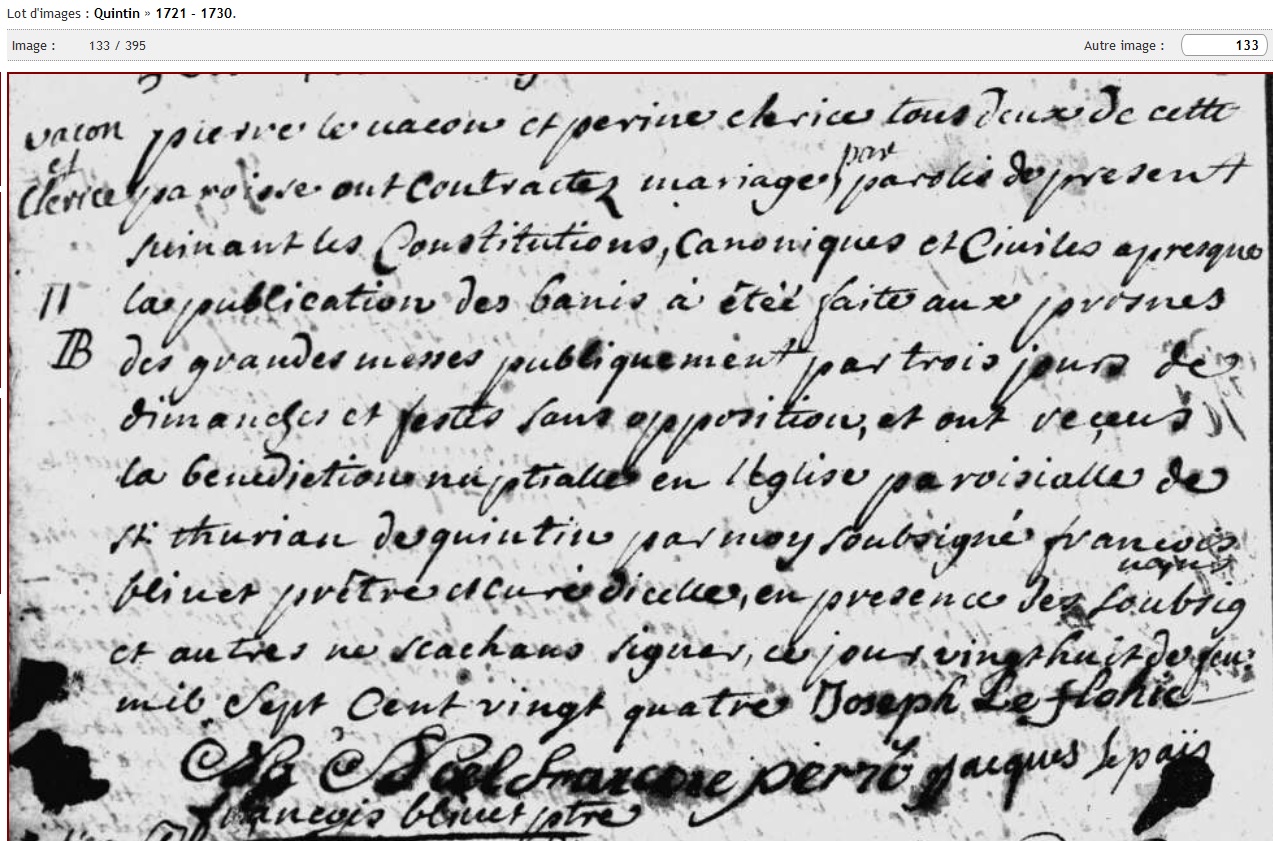 Lot d'images : Quintin » 1721 - 1730.
Image : 133 / 395 Autre image : 133
vacon
et
Clerice
II
B
pierre le uacon et perine clerice tous deux de cette
paroisse ont Contractez mariage, par parolis de present
suiuant les Constitutions, Canoniques et Ciuiles apresque
la publication des banis à étéé faite aux prosnes
des grandes messes publiquement par trois jours de
dimanches et festes sans opposition, et ont reçeus
la benediction nuptialle en l'église paroisialle de
st thurian de quintin par moy soubsigné francois
blinet prêtre et curé dicelle, en presence des soubsig
nans
et autres ne scachans signer, ce jour vingt huit de feu:
mil Sept Cent vingt quatre Joseph Le flohic
Noel francoise perro jacques le païs
francois blinet ptre